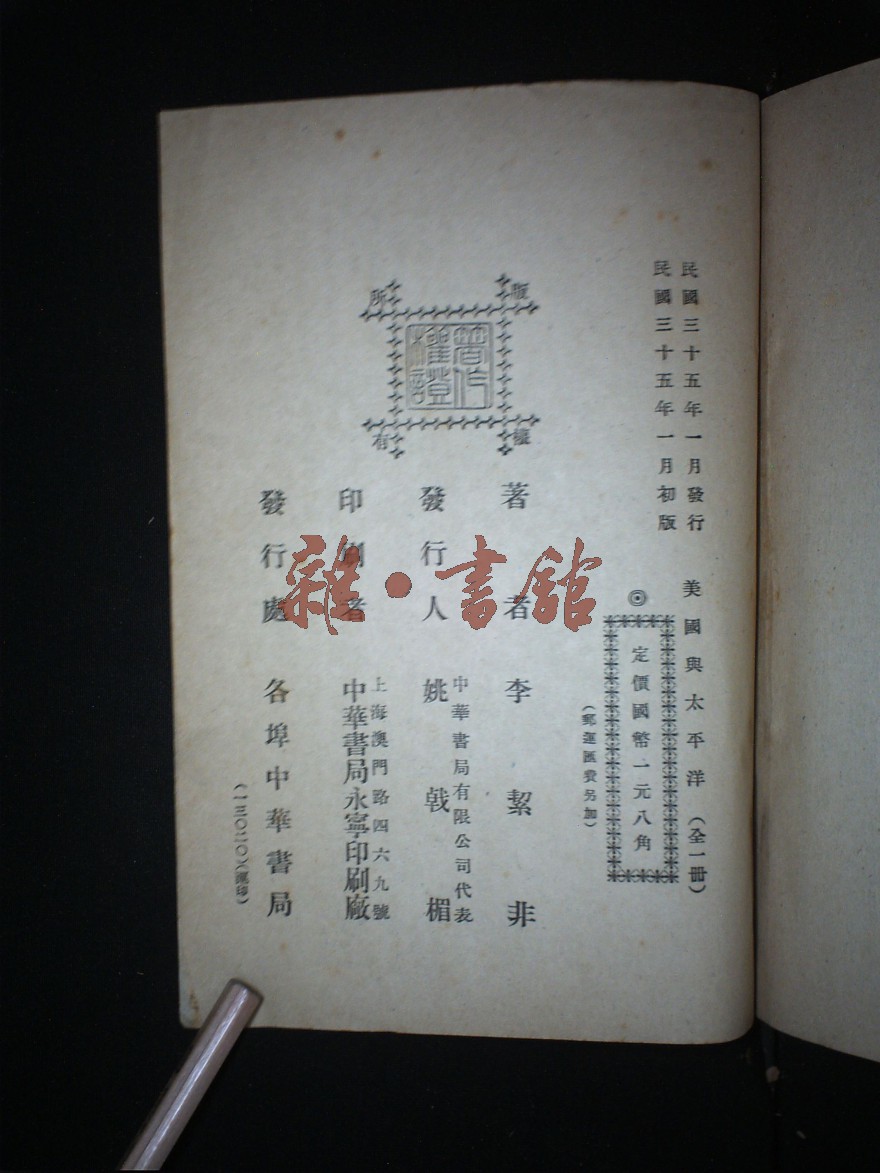 民國三十五年一月發行
民國三十五年一月初版
美國與太平洋（全一冊）
◎定價國幣一元八角
（郵運匯費另加）
版權所有
著作權證
著者 李絜非
發行人 中華書局有限公司代表
姚戟楣
印刷者 上海澳門路四六九號
中華書局永寧印刷廠
發行處 各埠中華書局
（一三〇二〇）（滬印）
雜·書館